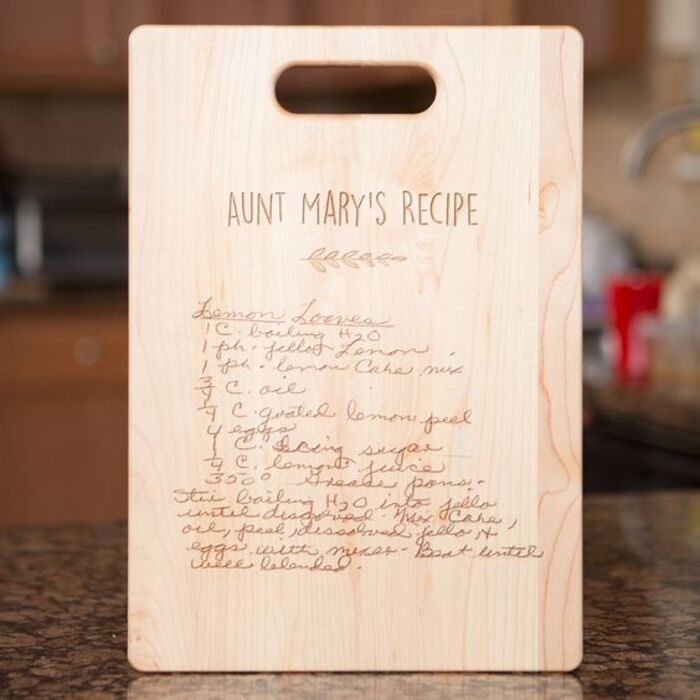 AUNT MARY'S RECIPE
Lemon Loaves
1 C. boiling H2O
1 pk. jello Lemon.
1 pk. lemon Cake mix
3/4 C. oil
1/4 C. grated lemon peel
4 eggs
1 C. Icing sugar
1/4 C. lemon juice
350° Grease pans.
Stir boiling H2O into jello
until dissolved. Mix Cake,
oil, peel, dissolved jello, +
eggs with mixer. Beat until
well blended.